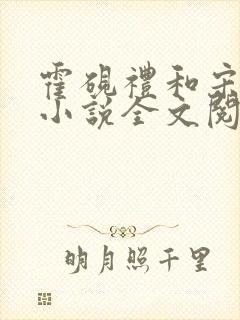 霍硯禮和宋
小說全文閱
明月照千里